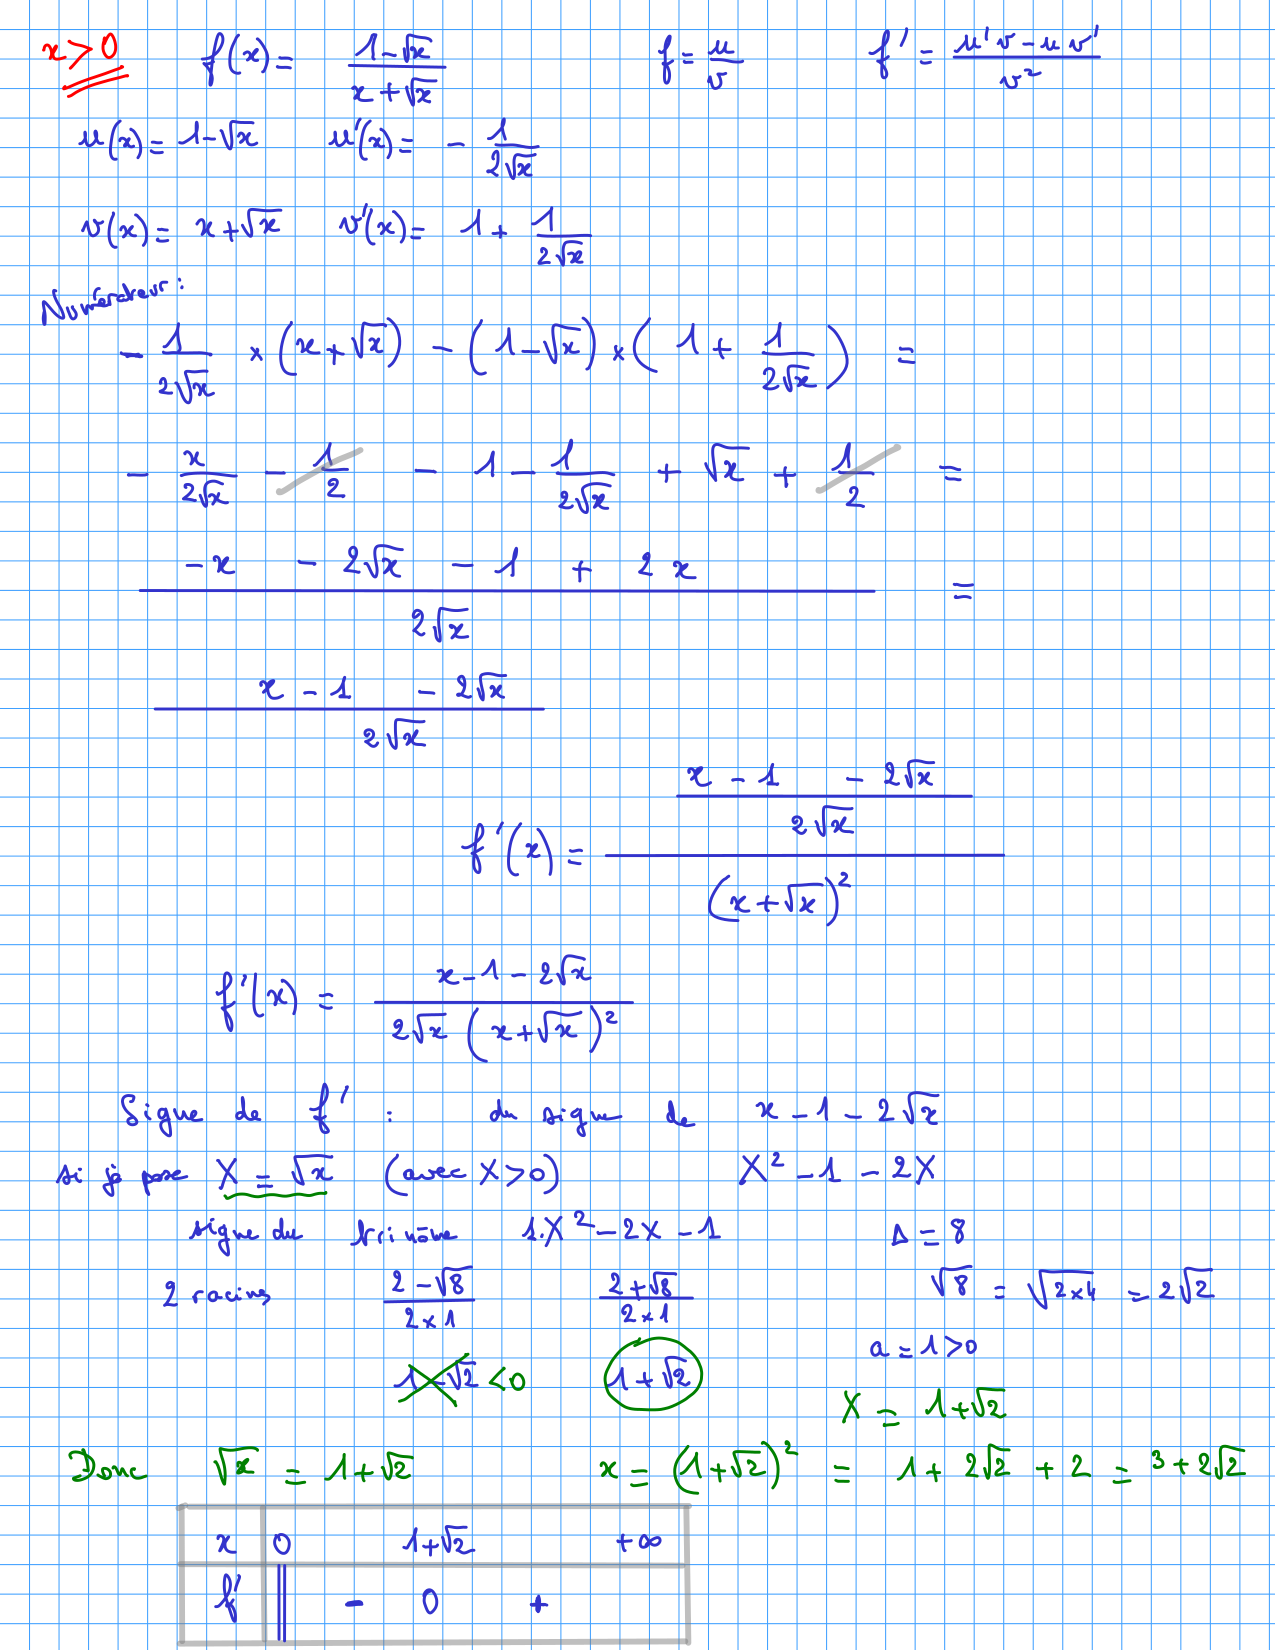 x>0 f(x) = (1-√x)/(x+√x) f = u/v f' = (u'v - uv')/v²
u(x) = 1-√x u'(x) = - 1/(2√x)
v(x) = x+√x v'(x) = 1 + 1/(2√x)
Numérateur :
- 1/(2√x) × (x+√x) - (1-√x) × (1 + 1/(2√x)) =
- x/(2√x) - 1/2 - 1 - 1/(2√x) + √x + 1/2 =
(-x - 2√x - 1 + 2x)/(2√x) =
(x - 1 - 2√x)/(2√x)
f'(x) = ((x - 1 - 2√x)/(2√x))/(x+√x)²
f'(x) = (x-1-2√x)/(2√x (x+√x)²)
Signe de f' : du signe de x - 1 - 2√x
si je pose X = √x (avec X>0) X² - 1 - 2X
signe du trinôme 1.X² - 2X - 1 Δ = 8
2 racines (2-√8)/(2×1) (2+√8)/(2×1) √8 = √(2×4) = 2√2
a = 1>0
1-√2 <0 1+√2
X = 1+√2
Donc √x = 1+√2 x = (1+√2)² = 1 + 2√2 + 2 = 3 + 2√2
x 0 1+√2 +∞
f' || - 0 +